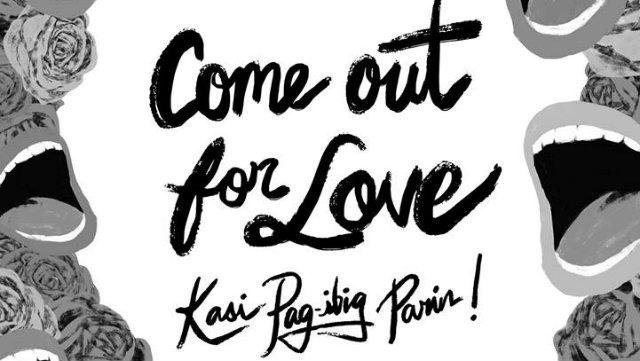 Come out
for Love
Kasi Pag-ibig Parin!